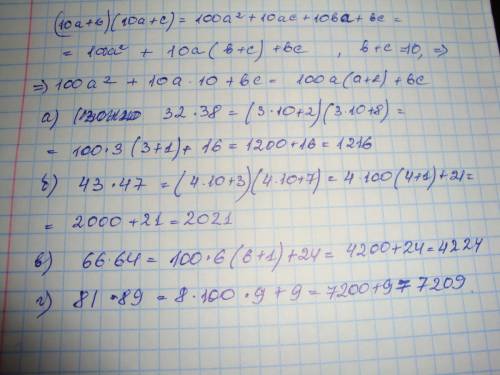 (10a+b)(10a+c) = 100a² + 10ac + 10ba + bc =
= 100a² + 10a(b+c) + bc , b+c=10, =>
=> 100a² + 10a·10 + bc = 100a(a+1) + bc
а) 32·38 = (3·10+2)(3·10+8) =
= 100·3(3+1) + 16 = 1200+16 = 1216
б) 43·47 = (4·10+3)(4·10+7) = 4·100(4+1)+21 =
= 2000+21 = 2021
в) 66·64 = 100·6(6+1)+24 = 4200+24 = 4224
г) 81·89 = 8·100·9+9 = 7200+9 = 7209.